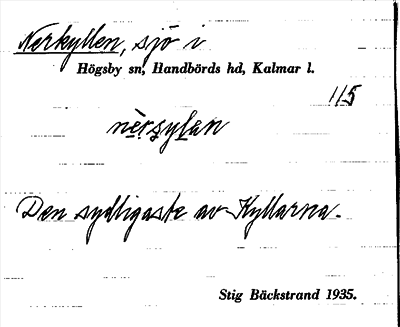 Nerkyllen, sjö i
Högsby sn, Handbörds hd, Kalmar l.
115
Den sydligaste av Kyllarna.
Stig Bäckstrand 1935.